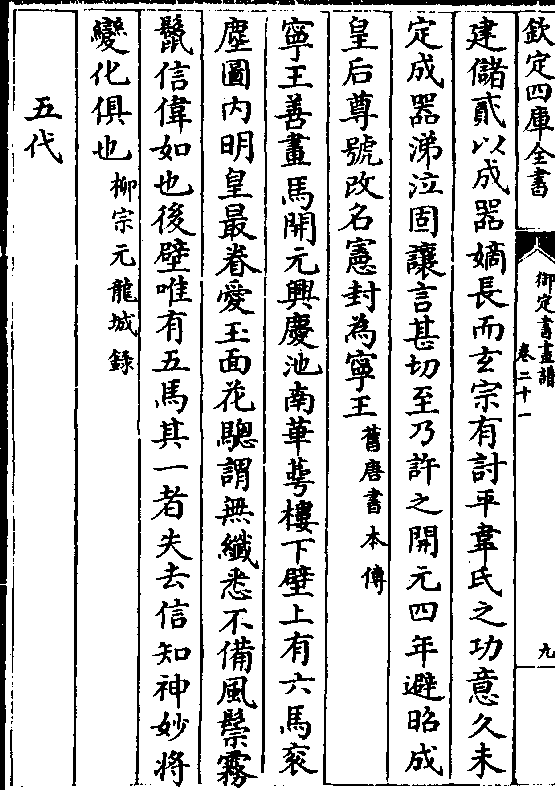 欽定四庫全書
御定書畫譜
卷二十一
九
建儲貳以成器嫡長而玄宗有討平韋氏之功意久未
定成器涕泣固讓言甚切至乃許之開元四年避昭成
皇后尊號改名憲封為寧王舊唐書本傳
寧王善畫馬開元興慶池南華萼樓下壁上有六馬衮
塵圖内明皇最眷愛玉面花驄謂無纎悉不備風鬃霧
鬛信偉如也後壁唯有五馬其一者失去信知神妙將
變化俱也柳宗元龍城録
五代